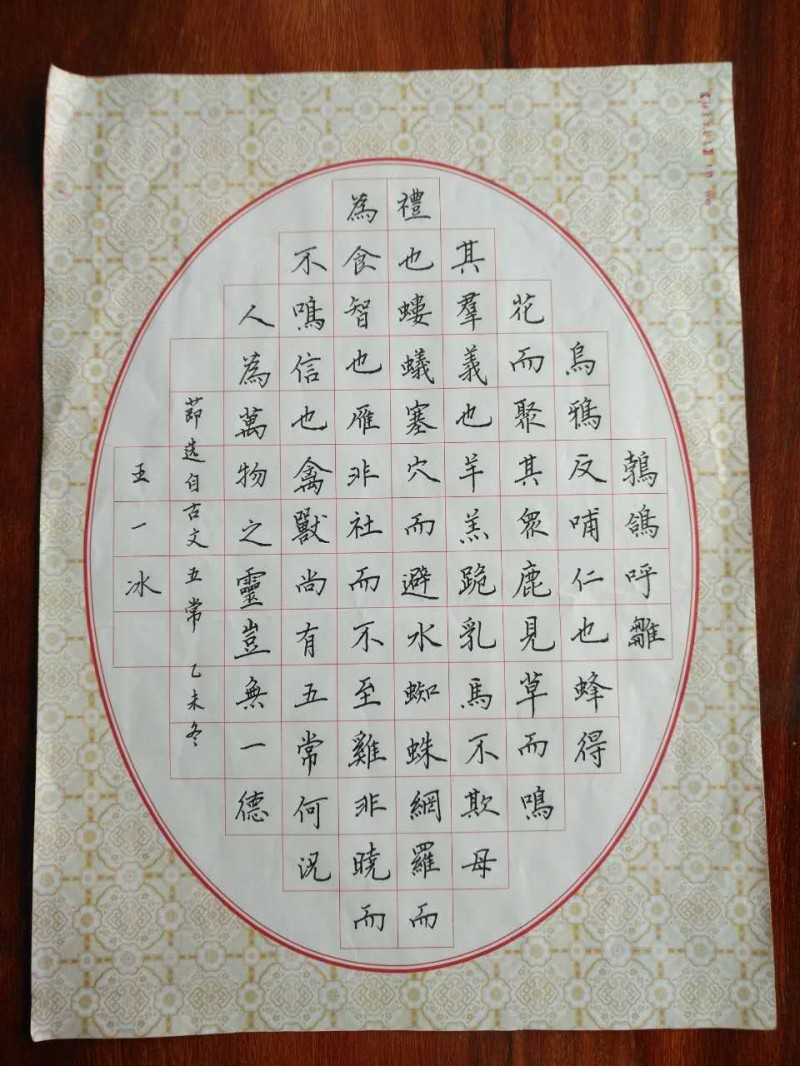 鵓鴿呼雛
烏鴉反哺仁也蜂得
花而聚其眾鹿見草而鳴
其羣義也羊羔跪乳馬不欺母
禮也螻蟻塞穴而避水蜘蛛網羅而
為食智也雁非社而不至雞非曉而
不鳴信也禽獸尚有五常何況
人為萬物之靈豈無一德
節选自古文五常 乙未冬
王一冰